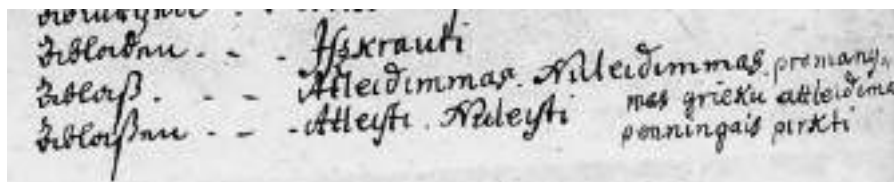 Abladen - - - Iſskrauti
Ablaß. - - - Atleidimmas. Nuleidimmas. pramany-
mas grieku atleidima
Ablaßen - - - Atleiſti. Nuleiſti penningais pirkti